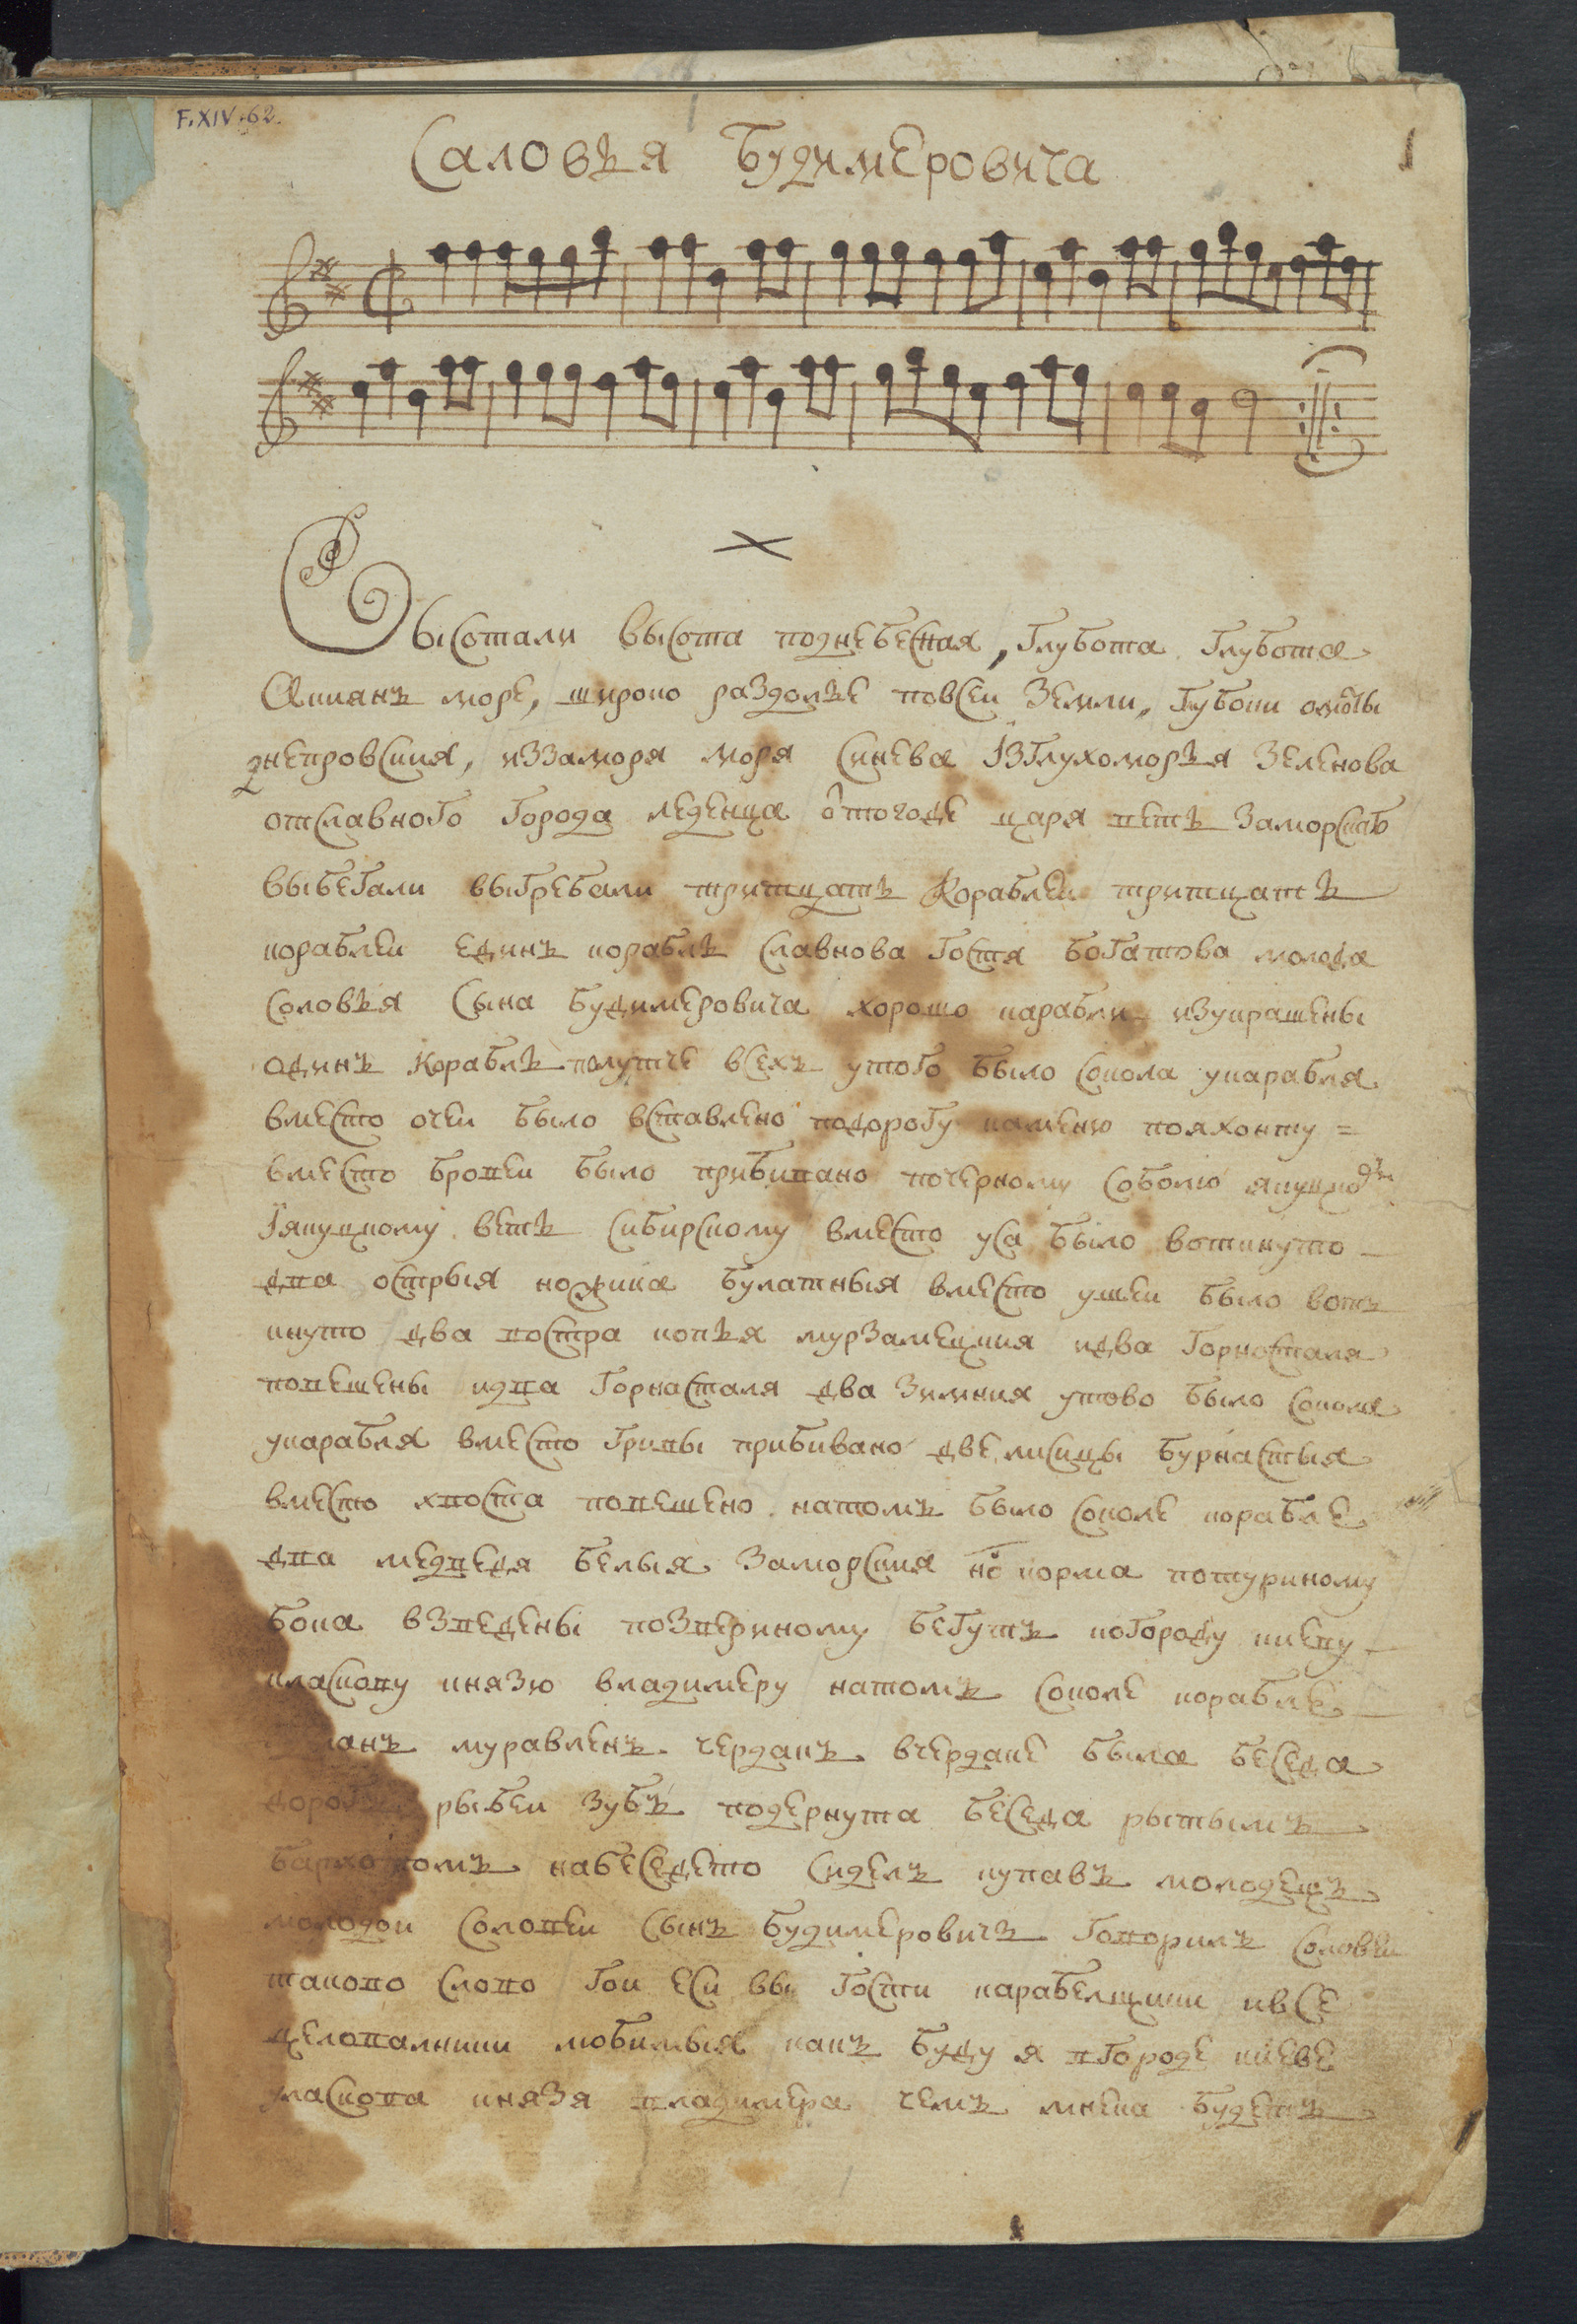 F.XIV.62.
1
Саловья Будимеровича
Высотали высота поднебесная, глубота глубота
Акиянъ море, широко раздолье повсей земли, глубоки омоты
днепровския, иззаморя моря синева изглухоморья зеленова
отславного города леденца отогоде царя веть заморскаго
выбегали выгребали тритцать кораблей тритцать
кораблей единъ корабль славнова гостя богатова молода
соловья сына будимеровича хорошо карабли изукрашены
одинъ корабль полутче всехъ утого было сокола укарабля
вместо очей было вставлено подорогу каменю пояхонту =
вместо бровей было прибивано почерному соболю якуцкому
Iякуцкому веть сибирскому вместо уса было воткнуто
два острыя ножика булатныя вместо ушей было вотъ
кнуто два востра копья мурзамецкия идва горносталя
повешены идва горнасталя два зимния утово было сокола
укарабля вместо гривы прибивано две лисицы бурнастыя
вместо хвоста повешено натомъ было соколе корабле
два медведя белыя заморския носъ корма потуриному
бока взведены позвериному бегутъ когороду киеву
класкову князю владимеру натомъ соколе корабле
муравленъ чердакъ вчердаке была беседа
дорогъ рыбей зубъ подернута беседа рытымъ
бархотомъ набеседето сиделъ купавъ молодецъ
молодой соловей сынъ будимеровичь говорилъ соловей
таково слово гои еси вы гости карабелщики ивсе
целовалники любимыя какъ буду я вгороде киеве
уласкова князя владимера чемъ мнека будетъ